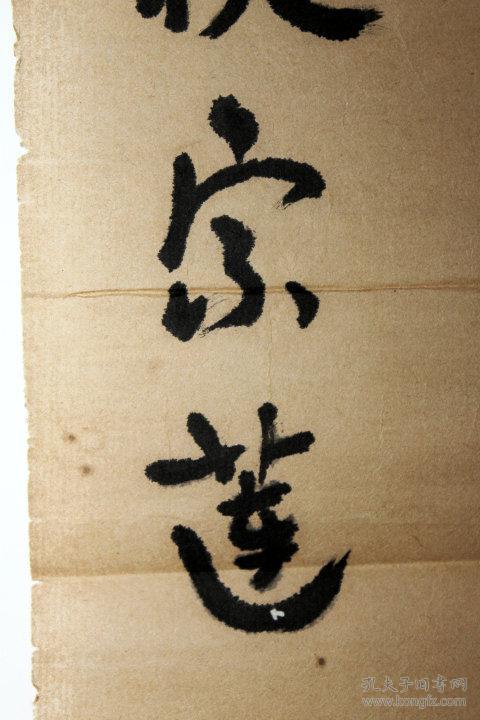 宗
蓮
孔夫子旧书网
www.kongfz.com